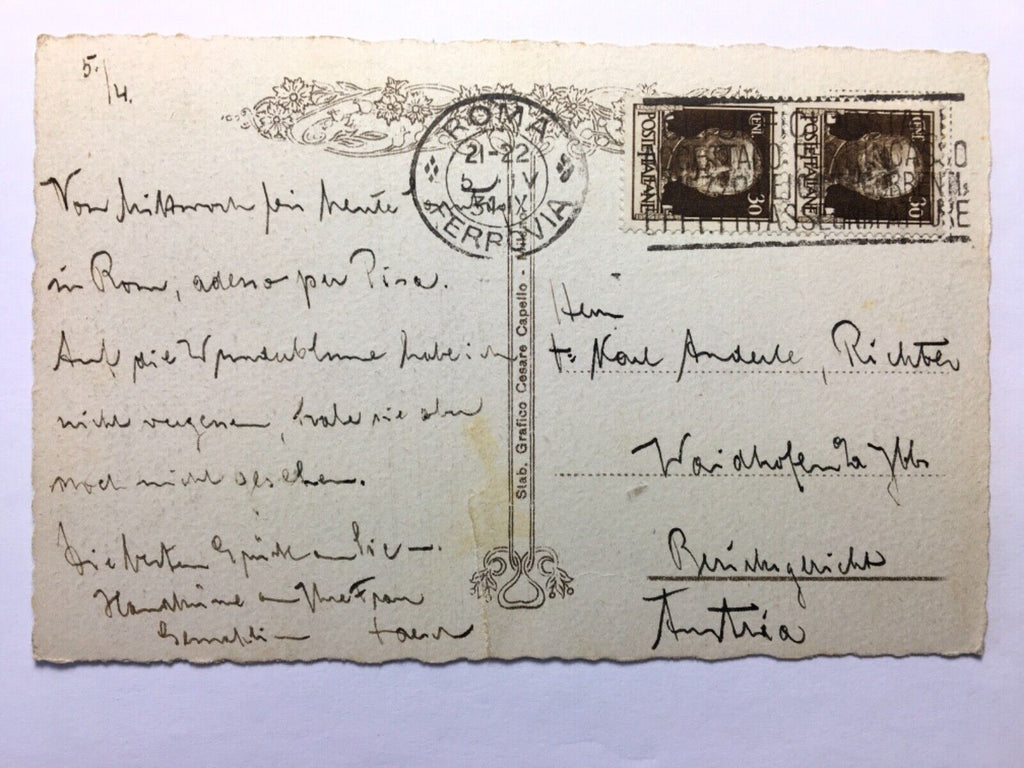 5./4.
Von Mittwoch bis heute
in Rom, adesso per Pisa.
Auf die Wunderblume habe ich
nicht vergessen, habe sie aber
noch nicht gesehen.
Die besten Grüße an Sie —.
Handküsse an Ihre Frau
Gemahlin
ROMA
21-22
5 IV
31 IX
FERROVIA
POSTE ITALIANE
30
POSTE ITALIANE
30
Stab. Grafico Cesare Capello -
Herrn
Karl Anderle, Richter
Waidhofen a Ybbs
Bezirksgericht
Austria